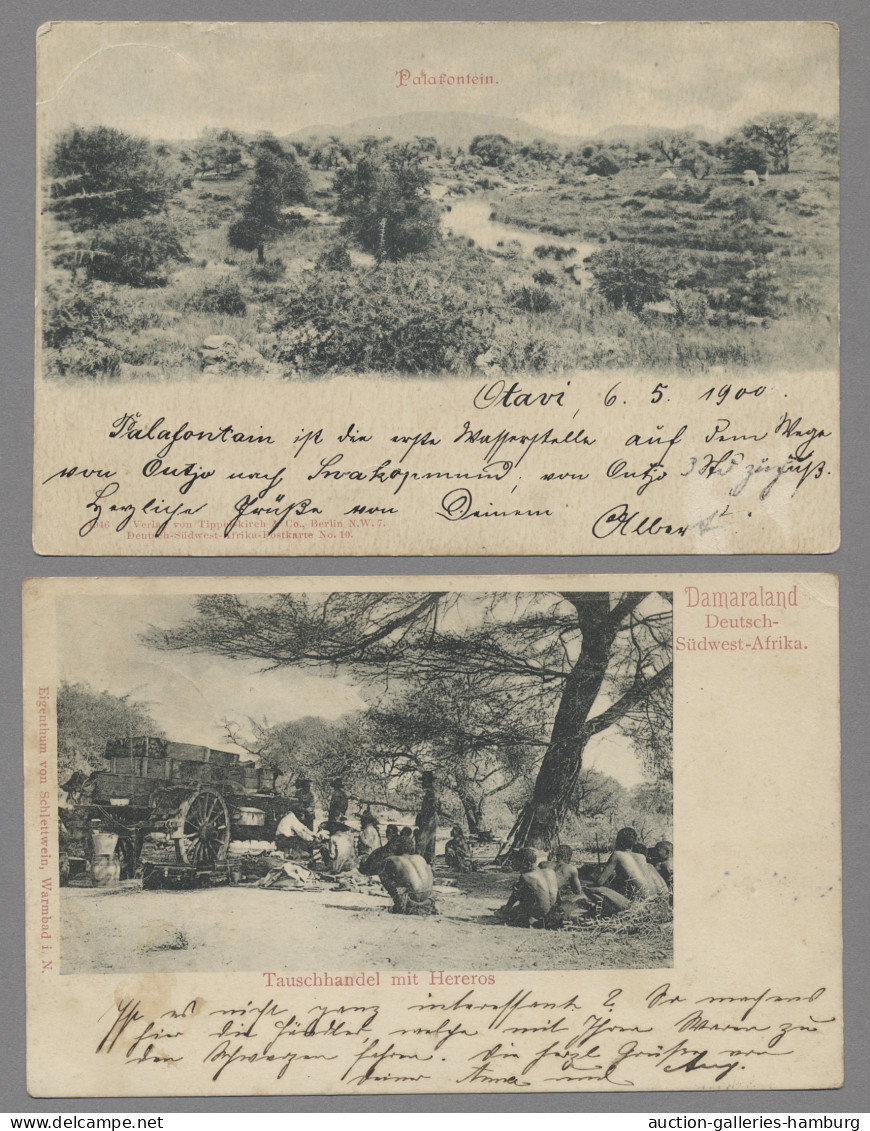 Palafontein.
Otavi, 6. 5. 1900.
Palafontain ist die erste Wasserstelle auf dem Wege
von Outjo nach Swakopmund, von Outjo 3 Std zu Fuß.
Herzliche Grüße von Deinem Albert.
Verlag von Tippelskirch & Co., Berlin N.W. 7.
Deutsch-Südwest-Afrika-Postkarte No. 10.
Damaraland
Deutsch-
Südwest-Afrika.
Eigenthum von Schlettwein, Warmbad i. N.
Tauschhandel mit Hereros
Ist es nicht ganz interessant? So machens
hier die Händler, welche mit Ihren Waren zu
den Schwarzen fahren. Die herzl Grüße von
deiner Anna und Aug.
auction-galleries-hamburg